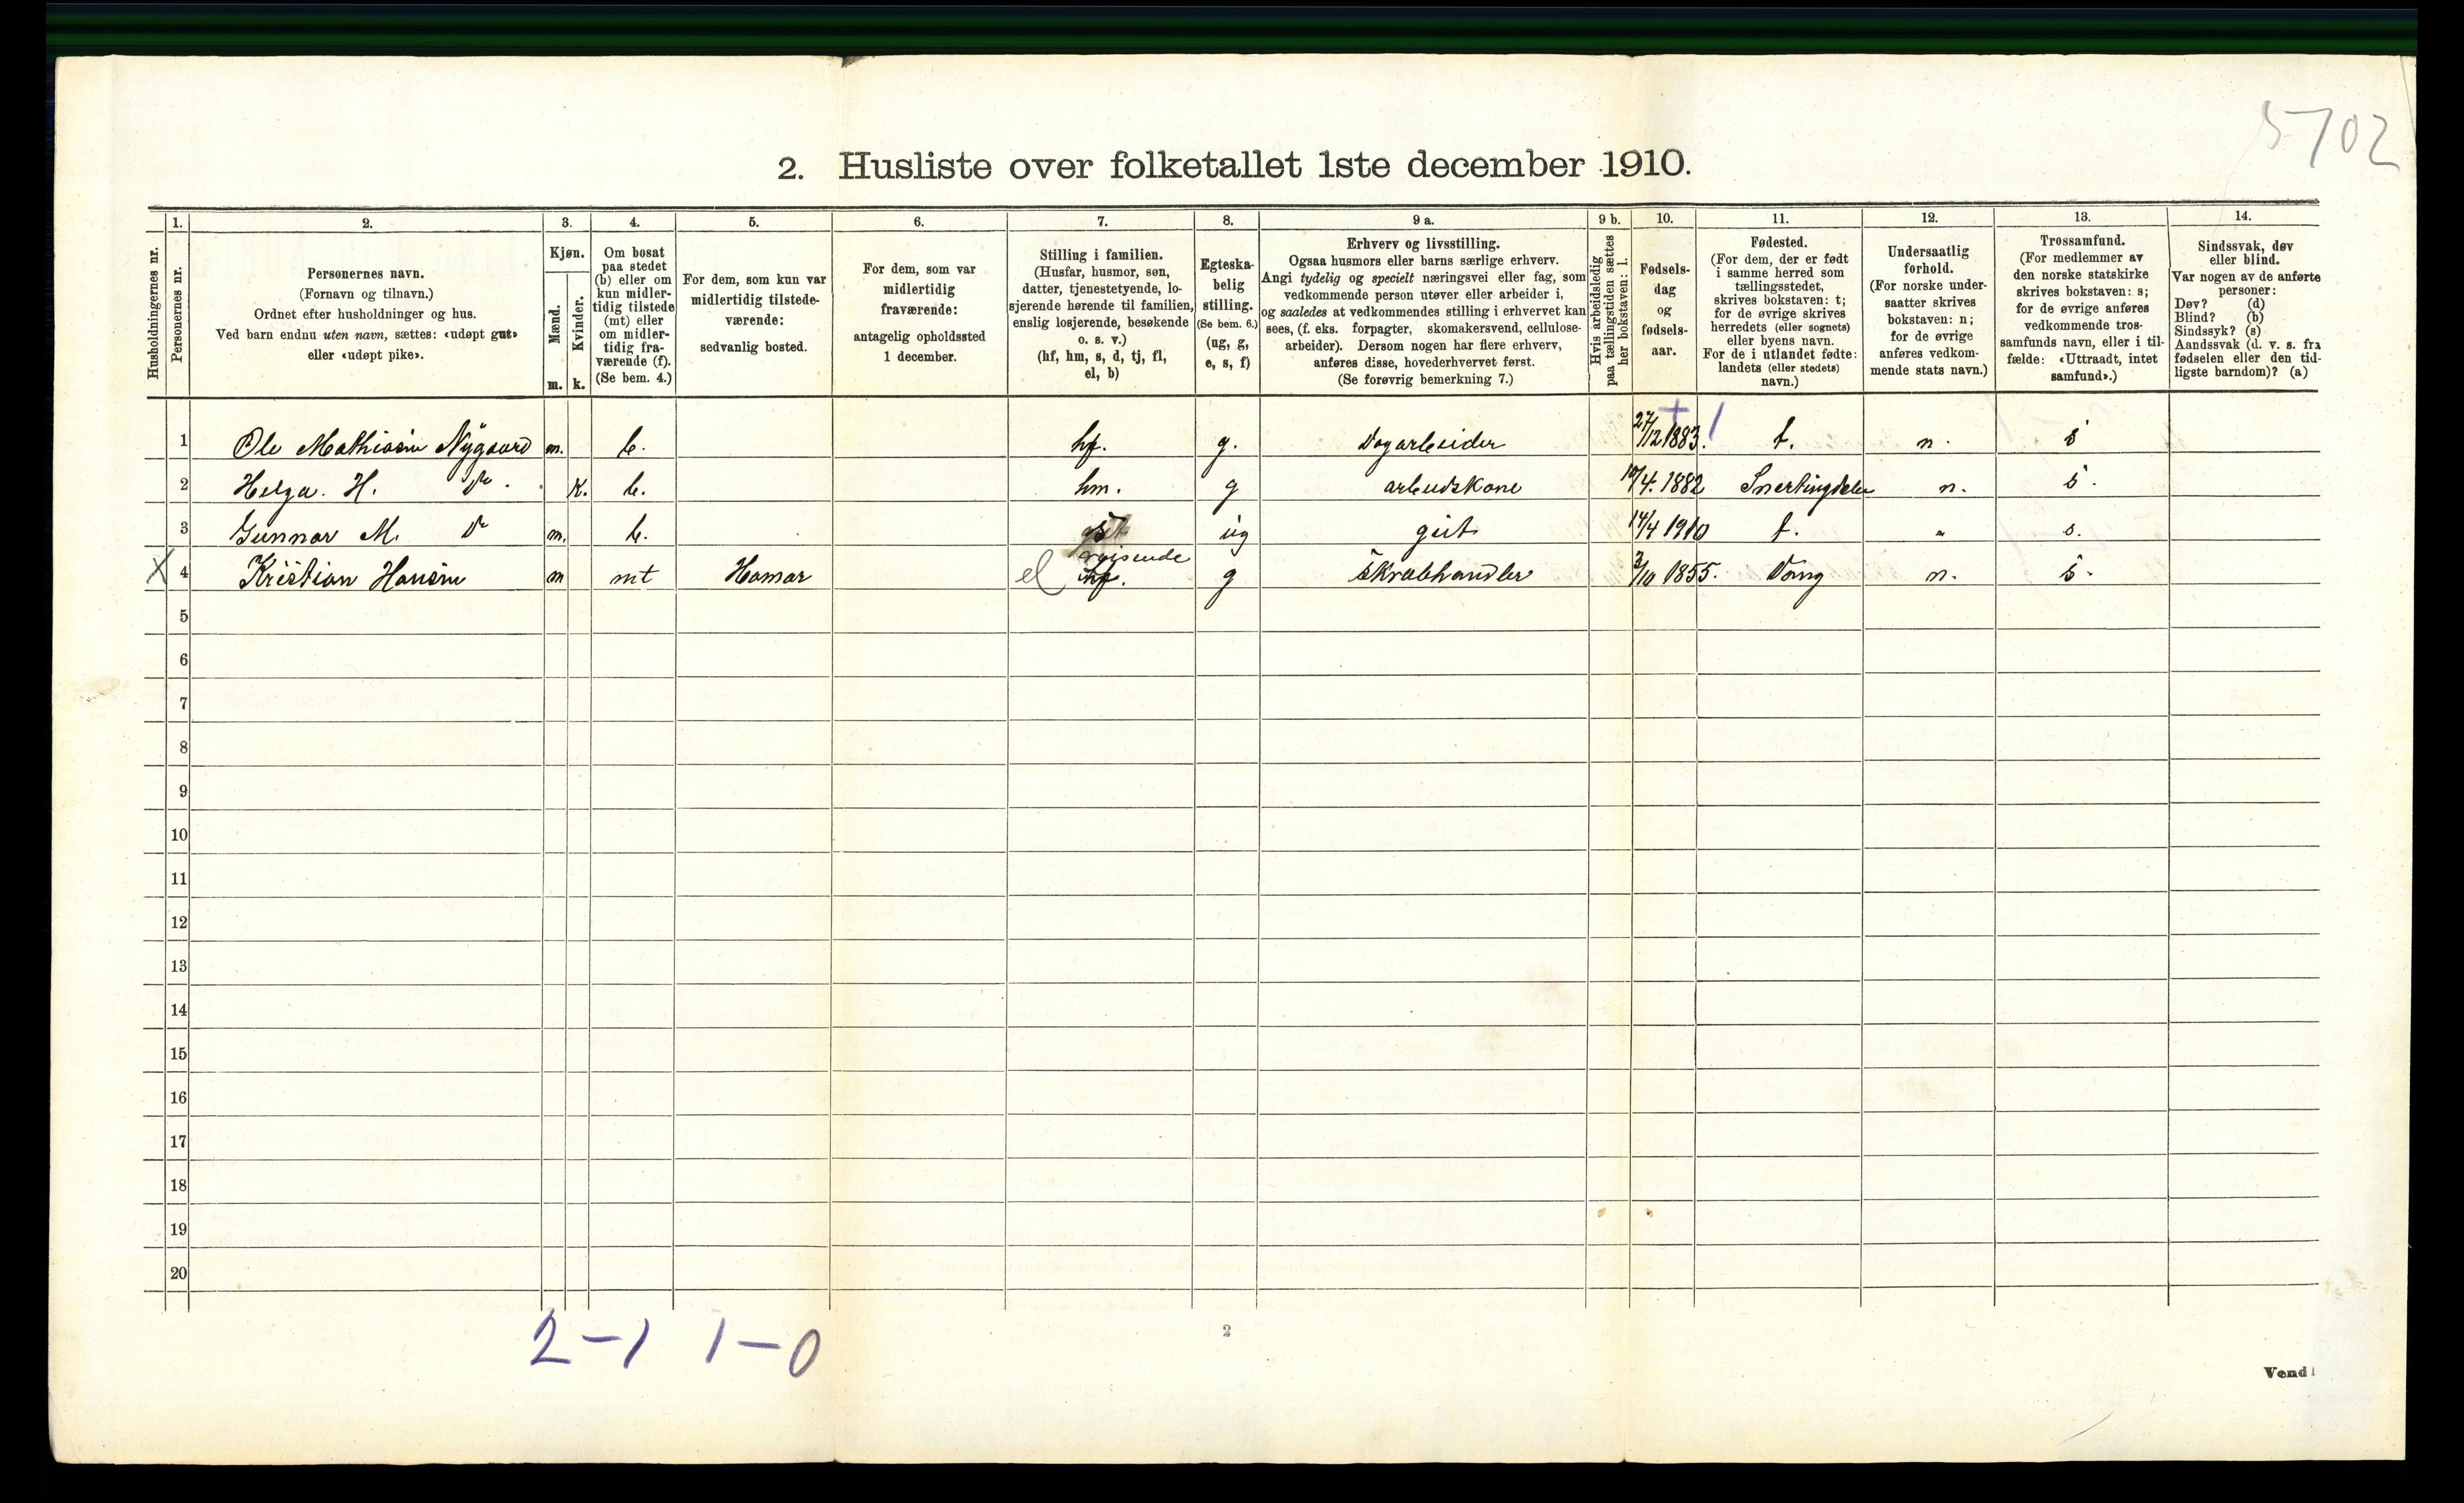 5702
2. Husliste over folketallet 1ste december 1910.
Husholdningernes nr.
1.
Personernes nr.
2.
Personernes navn.
(Fornavn og tilnavn.)
Ordnet efter husholdninger og hus.
Ved barn endnu uten navn, sættes: «udøpt gut»
eller «udøpt pike».
3.
Kjøn.
Mænd.
m.
Kvinder.
k.
4.
Om bosat
paa stedet
(b) eller om
kun midler-
tidig tilstede
(mt) eller
om midler-
tidig fra-
værende (f).
(Se bem. 4.)
5.
For dem, som kun var
midlertidig tilstede-
værende:
sedvanlig bosted.
6.
For dem, som var
midlertidig
fraværende:
antagelig opholdssted
1 december.
7.
Stilling i familien.
(Husfar, husmor, søn,
datter, tjenestetyende, lo-
sjerende hørende til familien,
enslig losjerende, besøkende
o. s. v.)
(hf, hm, s, d, tj, fl,
el, b)
8.
Egteska-
belig
stilling.
(Se bem. 6.)
(ug, g,
e, s, f)
9 a.
Erhverv og livsstilling.
Ogsaa husmors eller barns særlige erhverv.
Angi tydelig og specielt næringsvei eller fag, som
vedkommende person utøver eller arbeider i,
og saaledes at vedkommendes stilling i erhvervet kan
sees, (f. eks. forpagter, skomakersvend, cellulose-
arbeider). Dersom nogen har flere erhverv,
anføres disse, hovederhvervet først.
(Se forøvrig bemerkning 7.)
9 b.
Hvis arbeidsledig
paa tællingstiden sættes
her bokstaven: l.
10.
Fødsels-
dag
og
fødsels-
aar.
11.
Fødested.
(For dem, der er født
i samme herred som
tællingsstedet,
skrives bokstaven: t;
for de øvrige skrives
herredets (eller sognets)
eller byens navn.
For de i utlandet fødte:
landets (eller stedets)
navn.)
12.
Undersaatlig
forhold.
(For norske under-
saatter skrives
bokstaven: n;
for de øvrige
anføres vedkom-
mende stats navn.)
13.
Trossamfund.
(For medlemmer av
den norske statskirke
skrives bokstaven: s;
for de øvrige anføres
vedkommende tros-
samfunds navn, eller i til-
fælde: «Uttraadt, intet
samfund».)
14.
Sindssvak, døv
eller blind.
Var nogen av de anførte
personer:
Døv? (d)
Blind? (b)
Sindssyk? (s)
Aandssvak (d. v. s. fra
fødselen eller den tid-
ligste barndom)? (a)
1 Ole Mathisen Nygaard m. b. hf. g. Dagarbeider 27/12 1883. t. n. s
2 Helga. H. Do. k. b. hm. g arbeidskone 10/4. 1882 Snertingdalen n. s.
3 Gunnar M. Do m. b. s ug gut 14/4 1910 t. " s.
X 4 Kristian Hansen m mt Hamar el reisende hf. g Skrabhandler 3/10 1855. Vang n. s.
5
6
7
8
9
10
11
12
13
14
15
16
17
18
19
20
2-1 1-0
2
Vend!